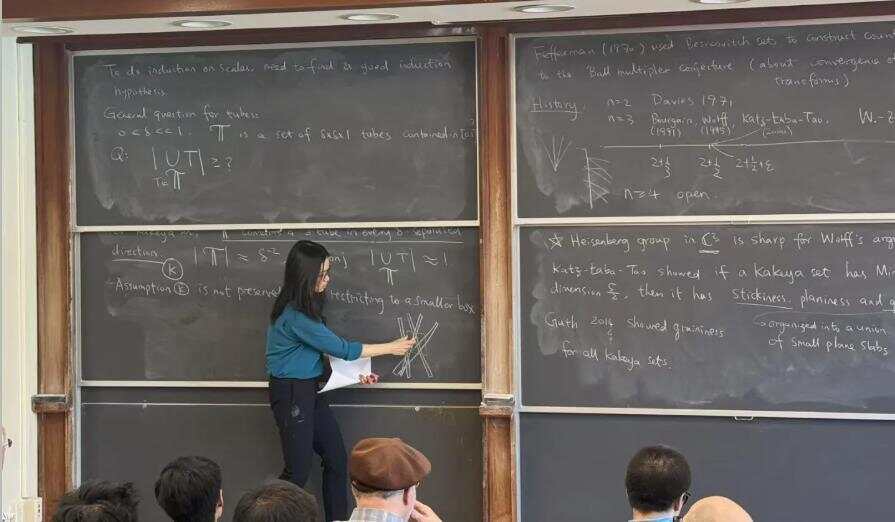 To do induction on scales, need to find a good induction
hypothesis.
General question for tubes:
0 < δ << 1. 𝕋 is a set of δxδx1 tubes contained in
Q: |∪T| ≥ ?
T∈𝕋
Kakeya 𝕋 contains a δ-tube in every δ-separated
direction |𝕋| ≈ δ⁻² |∪T| ≈ 1
Ⓚ 𝕋
- Assumption Ⓚ is not preserved restricting to a smaller box
Fefferman (1970) used Besicovitch sets to construct
to the Ball multiplier conjecture (about convergence of
transforms)
History. n=2 Davies 1971
n=3 Bourgain, Wolff, Katz-Łaba-Tao. W.-Z
(1991) (1995)
2+1/3 2+1/2 2+1/2+ε
n≥4 open.
☆ Heisenberg group in ℂ³ is sharp for Wolff's
Katz-Łaba-Tao showed if a Kakeya set has
dimension 5/2, then it has stickiness, planiness and
Guth 2014 showed graininess → organized into a union
of small plane slabs
for all Kakeya sets.